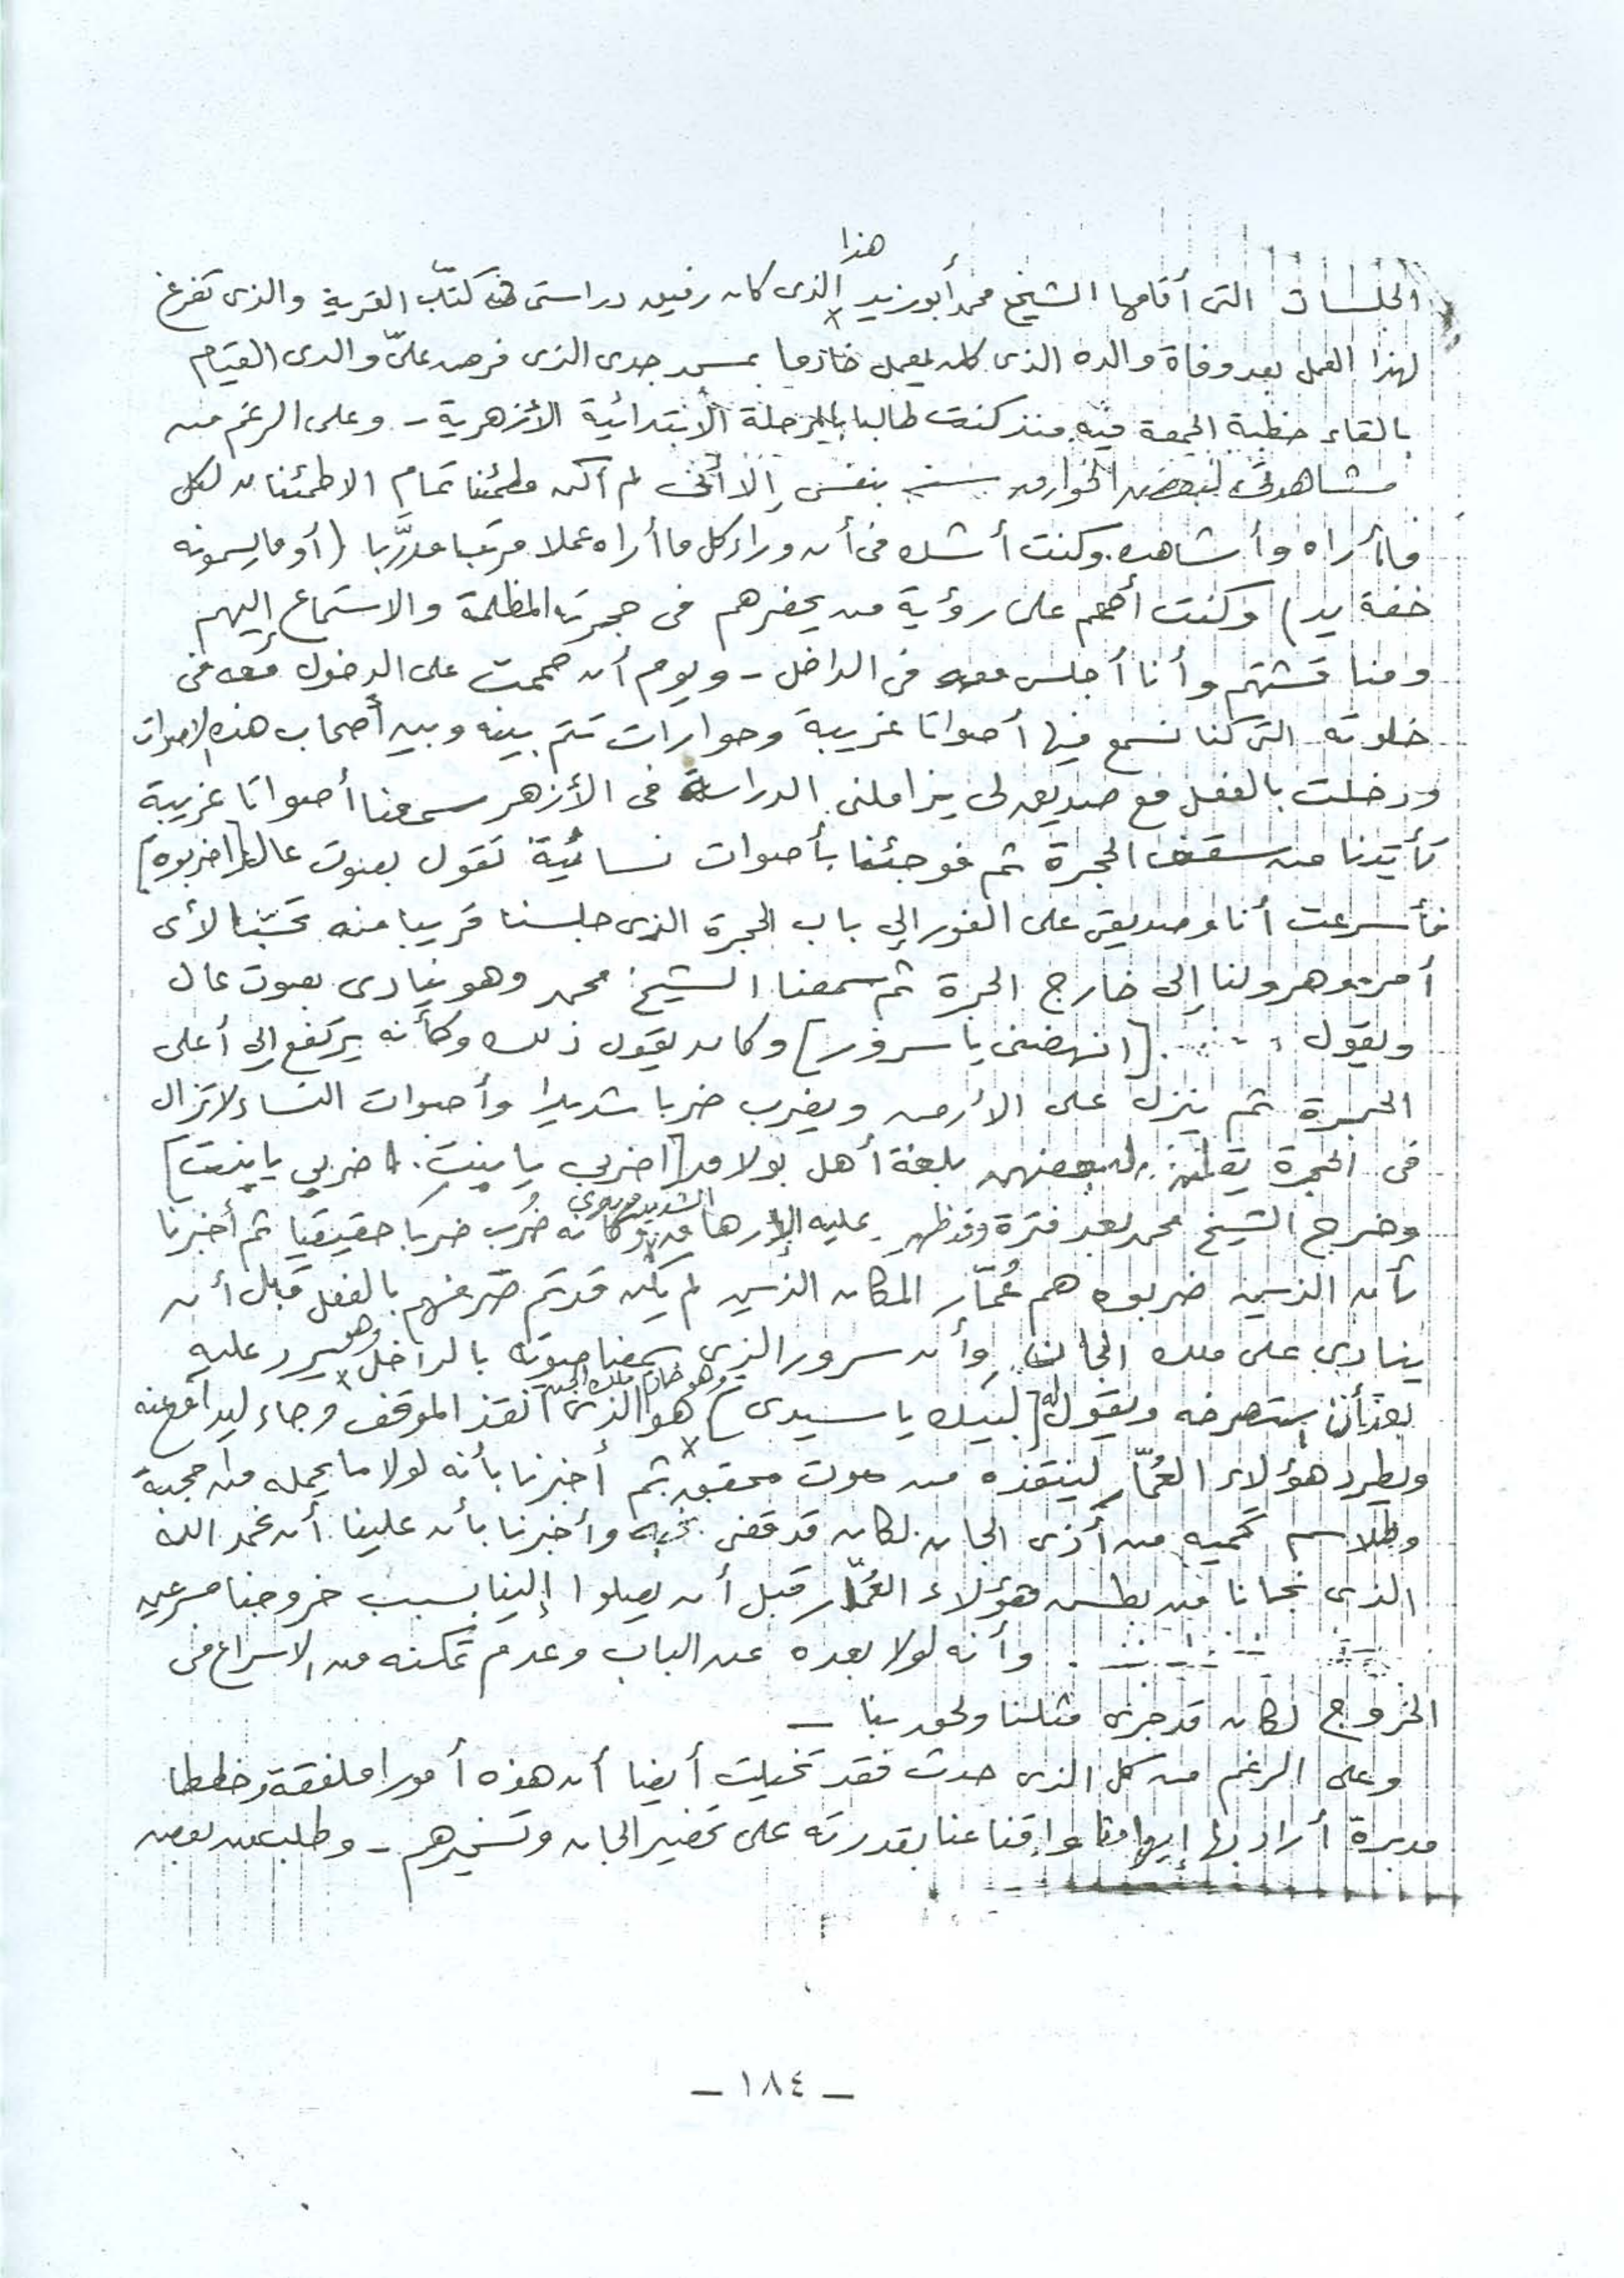 الجلسات التى أقامها الشيخ محمد أبوزيد هذا الذى كان رفيق دراستى فى كتّاب القرية والذى تفرغ
لهذا العمل بعد وفاة والده الذى كان يعمل خادما بمسجد جدى الذى فرض علىّ والدى القيام
بالقاء خطبة الجمعة فيه منذ كنت طالبا بالمرحلة الابتدائية الأزهرية - وعلى الرغم من
مشاهدتى لبعض الخوارق بنفسى إلا أننى لم أكن مطمئنا تمام الاطمئنان لكل
ما أراه وأشاهده. وكنت أشك فى أن وراء كل ما أراه عملا مرتبا مدرَّبا (أو ما يسمونه
خفة يد) وكنت أصمم على رؤية من يحضرهم فى حجرته المظلمة والاستماع إليهم
ومناقشتهم وأنا أجلس معه فى الداخل - ويوم أن صممت على الدخول معه فى
خلوته التى كنا نسمع فيها أصواتا غريبة وحوارات تتم بينه وبين أصحاب هذه الاصوات
ودخلت بالفعل مع صديق لى يزاملنى الدراسة فى الأزهر سمعنا أصواتا غريبة
تأتينا من سقف الحجرة ثم فوجئنا بأصوات نسائية تقول بصوت عال [اضربوه]
فأسرعت أنا وصديقى على الفور إلى باب الحجرة الذى جلسنا قريبا منه تحسّبا لأى
أمر. وهرولنا إلى خارج الحجرة ثم سمعنا الشيخ محمد وهو ينادى بصوت عال
ويقول [انهضنى يا سرور] وكان يقول ذلك وكأنه يرتفع إلى أعلى
الحجرة ثم ينزل على الأرض ويضرب ضربا شديدا وأصوات النساء لا تزال
فى الحجرة يقلن لبعضهن بلغة أهل بولاق [اضربي يا بنت. اضربي يا بنت]
وخرج الشيخ محمد بعد فترة وقد ظهر عليه الإرهاق الشديد وكأنه ضُرب ضربا حقيقيا ثم أخبرنا
بأن الذين ضربوه هم عُمّار المكان الذين لم يكن قد تم صرفهم بالفعل قبل أن
ينادى على ملك الجان وأن سرور الذى سمعنا صوته بالداخل وهو يرد عليه
بعد أن استصرخه ويقول له [لبيك يا سيدى] وهو خادم ملك الجن هو الذى أنقذ الموقف وجاء ليدافع عنه
ويطرد هؤلاء العُمّار لينقذه من موت محقق ثم أخبرنا بأنه لولا ما يحمله من محجبة
وطلاسم تحميه من أذى الجان لكان قد قضى نحبه وأخبرنا بأن علينا أن نحمد الله
الذى نجانا من بطش هؤلاء العُمّار قبل أن يصلوا إلينا بسبب خروجنا مسرعين
وأنه لولا بعده عن الباب وعدم تمكنه من الاسراع فى
الخروج لكان قد جرى مثلنا ولحق بنا -
وعلى الرغم من كل الذى حدث فقد تخيلت أيضا أن هذه أمورا ملفقة وخططا
مدبرة أراد بها إيهامنا وإقناعنا بقدرته على تحضير الجان وتسخيرهم - وطلب من بعض
- ١٨٤ -